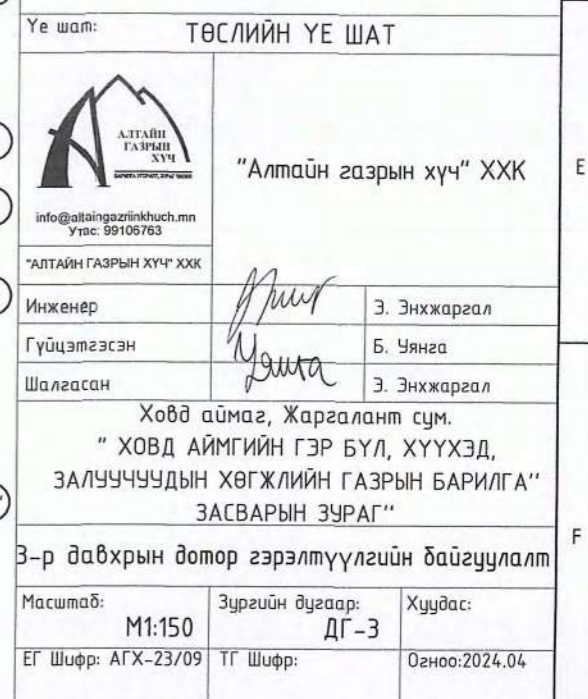 Үе шат: ТӨСЛИЙН ҮЕ ШАТ
АЛТАЙН
ГАЗРЫН
ХҮЧ
info@altaingazriinkhuch.mn
Утас: 99106763
"АЛТАЙН ГАЗРЫН ХҮЧ" ХХК
"Алтайн газрын хүч" ХХК
E
Инженер Э. Энхжаргал
Гүйцэтгэсэн Б. Уянга
Уянга
Шалгасан Э. Энхжаргал
Ховд аймаг, Жаргалант сум.
" ХОВД АЙМГИЙН ГЭР БҮЛ, ХҮҮХЭД,
ЗАЛУУЧУУДЫН ХӨГЖЛИЙН ГАЗРЫН БАРИЛГА"
ЗАСВАРЫН ЗУРАГ"
F
3-р давхрын дотор гэрэлтүүлгийн байгуулалт
Масштаб: Зургийн дугаар: Хуудас:
М1:150 ДГ-3
ЕГ Шифр: АГХ-23/09 ТГ Шифр: Огноо:2024.04